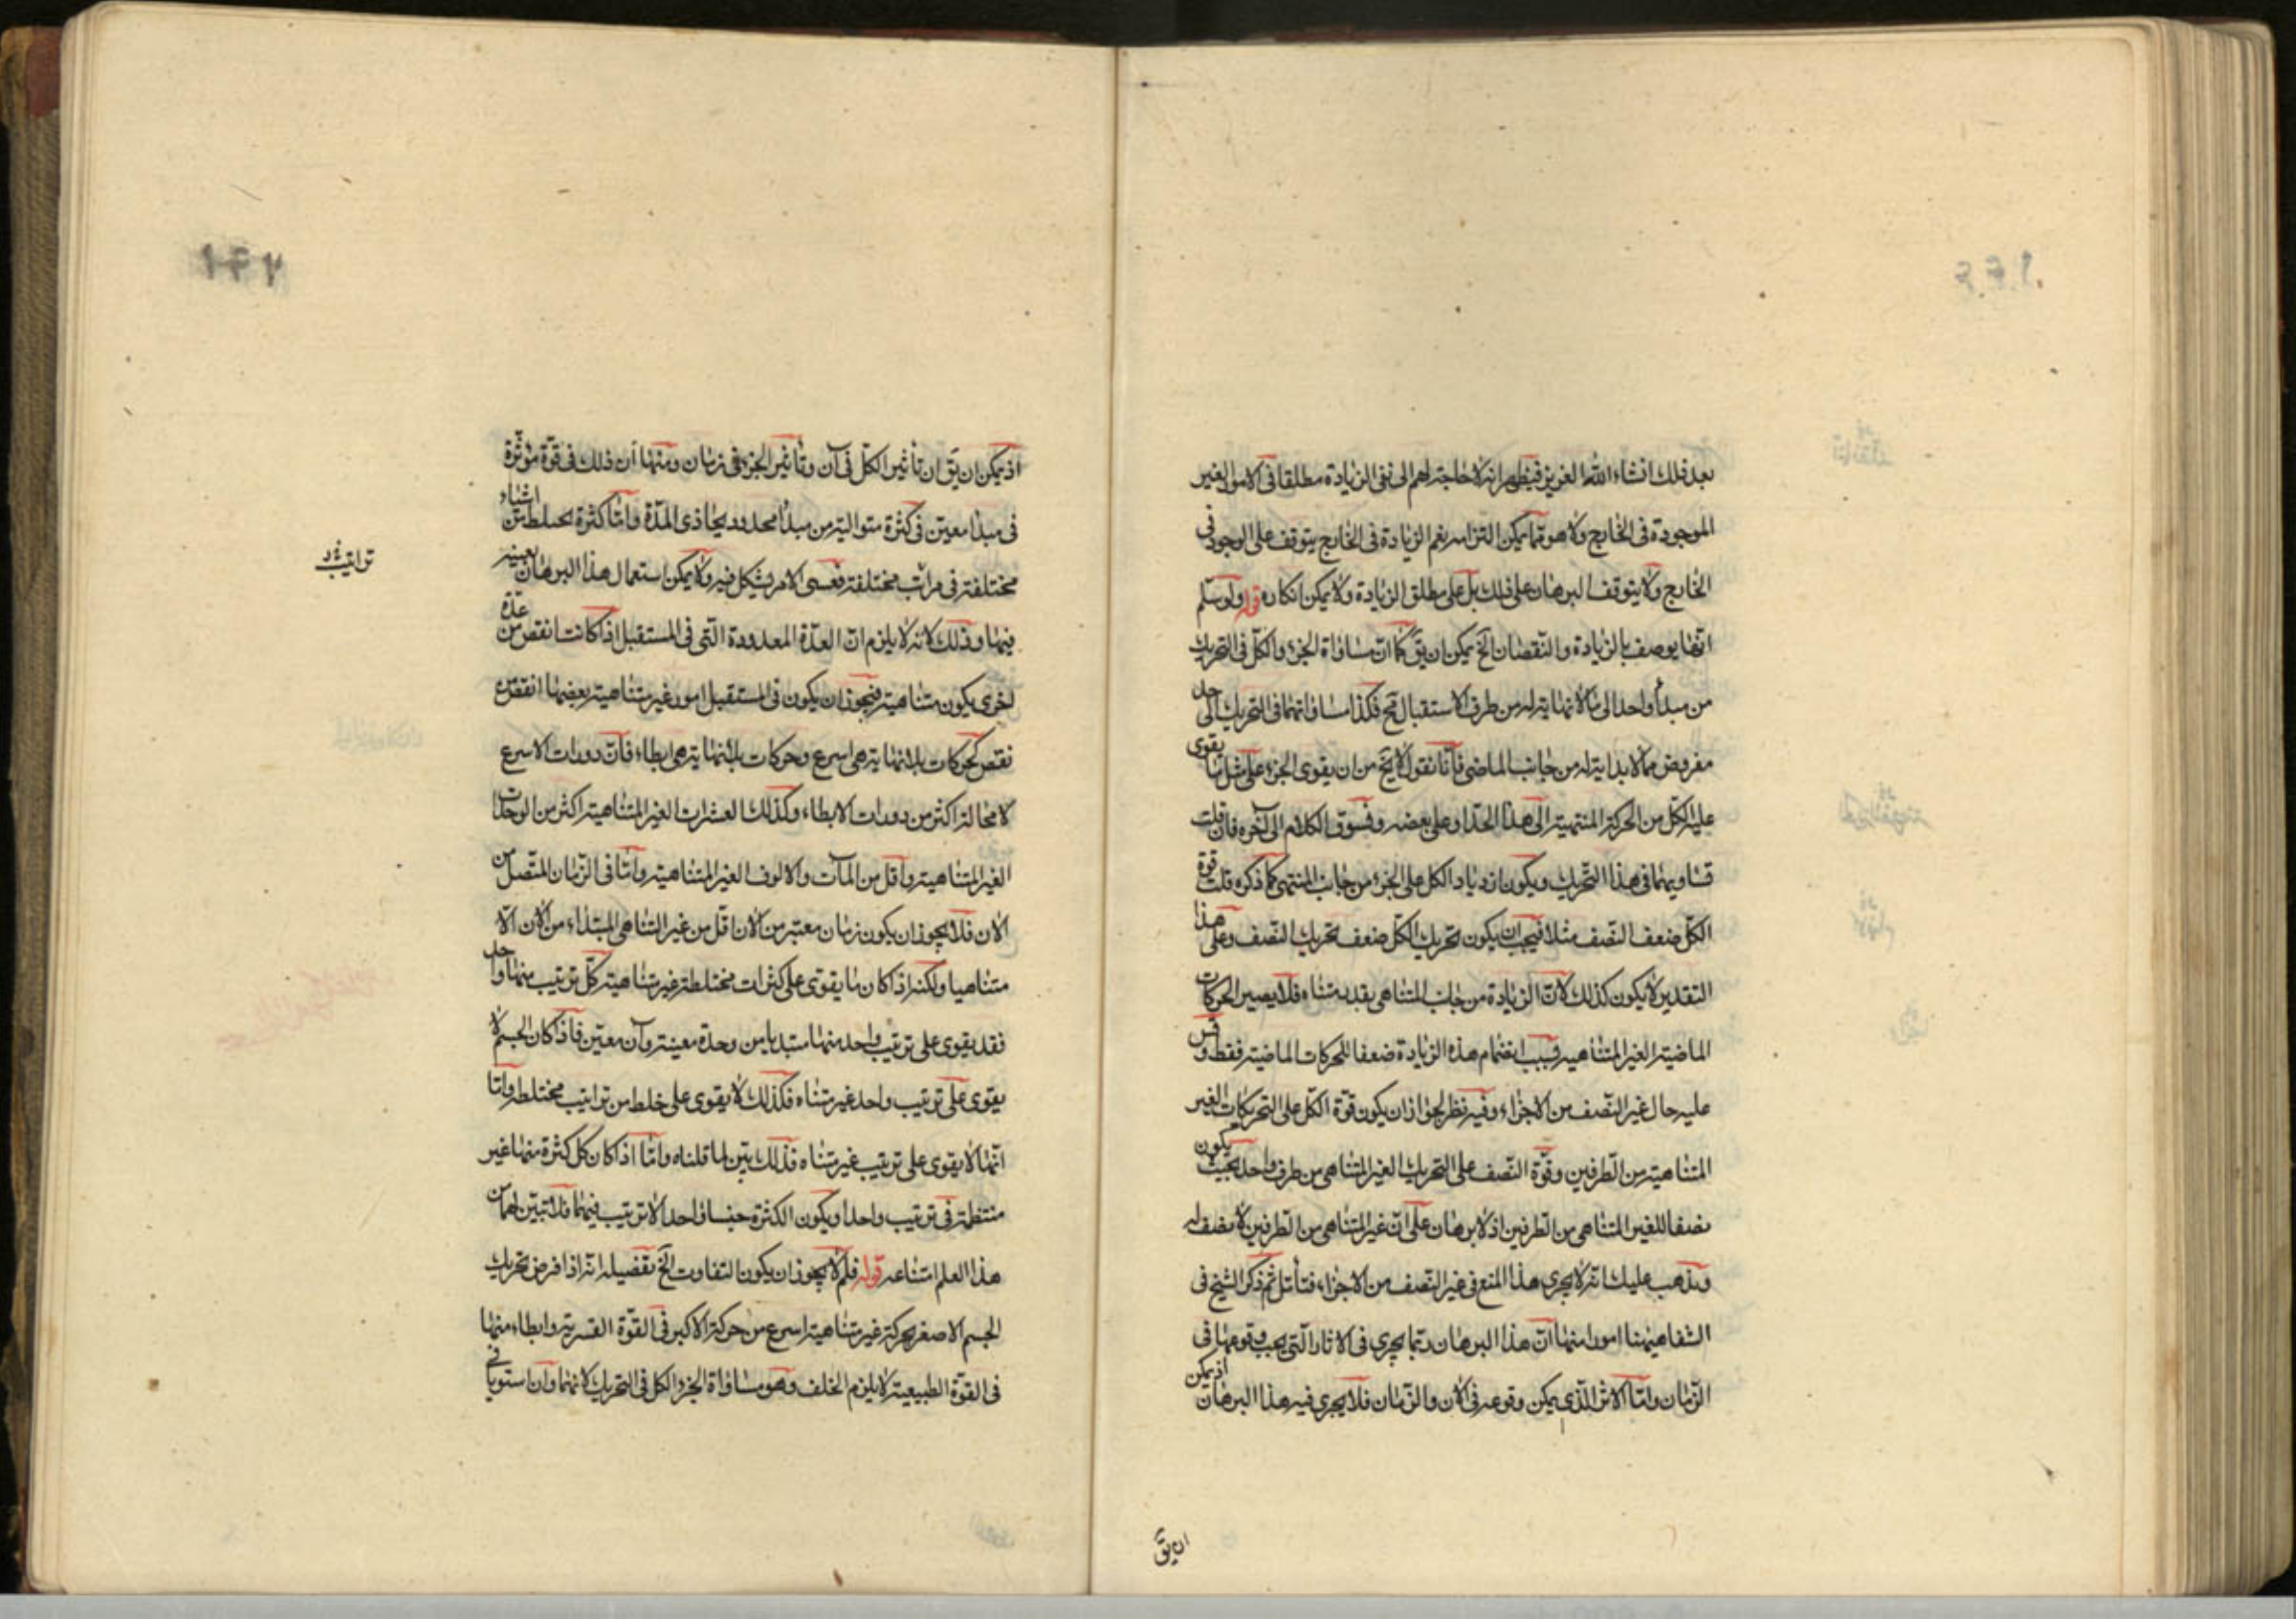 بعد ذلك انشاء الله العزيز فيظهر انه لا حاجة لهم الى نفى الزيادة مطلقا فى الامور الغير
الموجودة فى الخارج ولا هو مما يمكن التزامه نعم الزيادة فى الخارج يتوقف على الوجود فى
الخارج ولا يتوقف البرهان على ذلك بل على مطلق الزيادة ولا يمكن انكاره قوله ولو سلم
انها يوصف بالزيادة والنقصان الخ يمكن ان يق كما ان مساواة الجزء والكل فى التحريك
من مبدأ واحد الى ما لا نهاية له من طرف الاستقبال مح فكذا مساواتهما فى التحريك الى حد
مفروض مما لا بداية له من جانب الماضى فانا نقول لا يخ من ان يقوى الجزء على مثل ما يقوى
عليه الكل من الحركة المنتهية الى هذا الحد او على بعضه ونسوق الكلام الى آخره فان قلت
تساويهما فى هذا التحريك ويكون ازدياد الكل على الجزء من جانب المنتهى كما ذكره قلت قوة
الكل ضعف النصف مثلا فيجب ان يكون تحريك الكل ضعف تحريك النصف وعلى هذا
التقدير لا يكون كذلك لان الزيادة من جانب المتناهى بقدر متناه فلا يصير الحركات
الماضية الغير المتناهية بسبب انضمام هذه الزيادة ضعفا للحركات الماضية فقط وقس
عليه حال غير النصف من الاجزاء وفيه نظر لجواز ان يكون قوة الكل على التحريكات الغير
المتناهية من الطرفين وقوة النصف على التحريك الغير المتناهى من طرف واحد بحيث يكون
نصفا للغير المتناهى من الطرفين اذ لا برهان على ان غير المتناهى من الطرفين لا نصف له
ويذهب عليك انه لا يجرى هذا المنع فى غير النصف من الاجزاء فتأمل ثم ذكر الشيخ فى
الشفا هيهنا امورا منها ان هذا البرهان ربما يجرى فى الاثار التى يجب وقوعها فى
الزمان واما الاثر الذى يمكن وقوعه فى الان والزمان فلا يجرى فيه هذا البرهان اذ يمكن
ان يق
اذ يمكن ان يق ان تأثير الكل فى آن وتأثير الجزء فى زمان ومنها ان ذلك فى قوة مؤثرة
فى مبدأ معين فى كثرة متوالية من مبدأ محدود يحاذى المدة واما كثرة اشياء
مختلفة فى مراتب مختلفة فعسى الامر يشكل فيه ولا يمكن استعمال هذا البرهان بعينه
فيها وذلك لانه لا يلزم ان العدة المعدودة التى فى المستقبل اذا كانت انقص من عدة
اخرى يكون متناهية فيجوز ان يكون فى المستقبل امور غير متناهية بعضها انقص من
نقص كحركات بلا نهاية هى اسرع وحركات بلا نهاية هى ابطاء فان دورات الاسرع
لا محالة اكثر من دورات الابطاء وكذلك العشرات الغير المتناهية اكثر من الوحدات
الغير المتناهية واقل من المآت والالوف الغير المتناهية واما فى الزمان المتصل من
الان فلا يجوز ان يكون زمان معتبر من الان اقل من غير المتناهى المبتداء من الان الا
متناهيا ولكنه اذا كان ما يقوى على كثرات مختلطة غير متناهية كل ترتيب منها واحد
فقد يقوى على ترتيب واحد منها مبتديا من وحدة معينة وآن معين فاذا كان الجسم لا
يقوى على ترتيب واحد غير متناه فكذلك لا يقوى على خلط من تراتيب مختلطة واما
انها لا يقوى على ترتيب غير متناه فذلك بين لما قلناه واما اذا كان كل كثرة منها غير
منتظمة فى ترتيب واحد او يكون الكثرة جنسا واحدا لا ترتيب فيها فلا تبين لها من
هذا العلم امتناعه قوله فلم لا يجوز ان يكون التفاوت الخ تفصيله انه اذا فرض تحريك
الجسم الاصغر بحركة غير متناهية اسرع من حركة الاكبر فى القوة القسرية وابطاء منها
فى القوة الطبيعية لا يلزم الخلف وهو مساواة الجزء والكل فى التحريك لانهما وان استويا فى
تراتيب